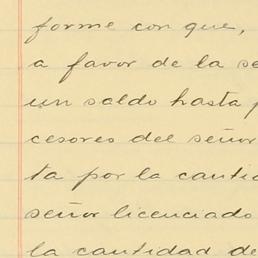 forme con que,
a favor de la se
un saldo hasta p
cesores del señor
ta por la cantid
señor licenciado
la cantidad de